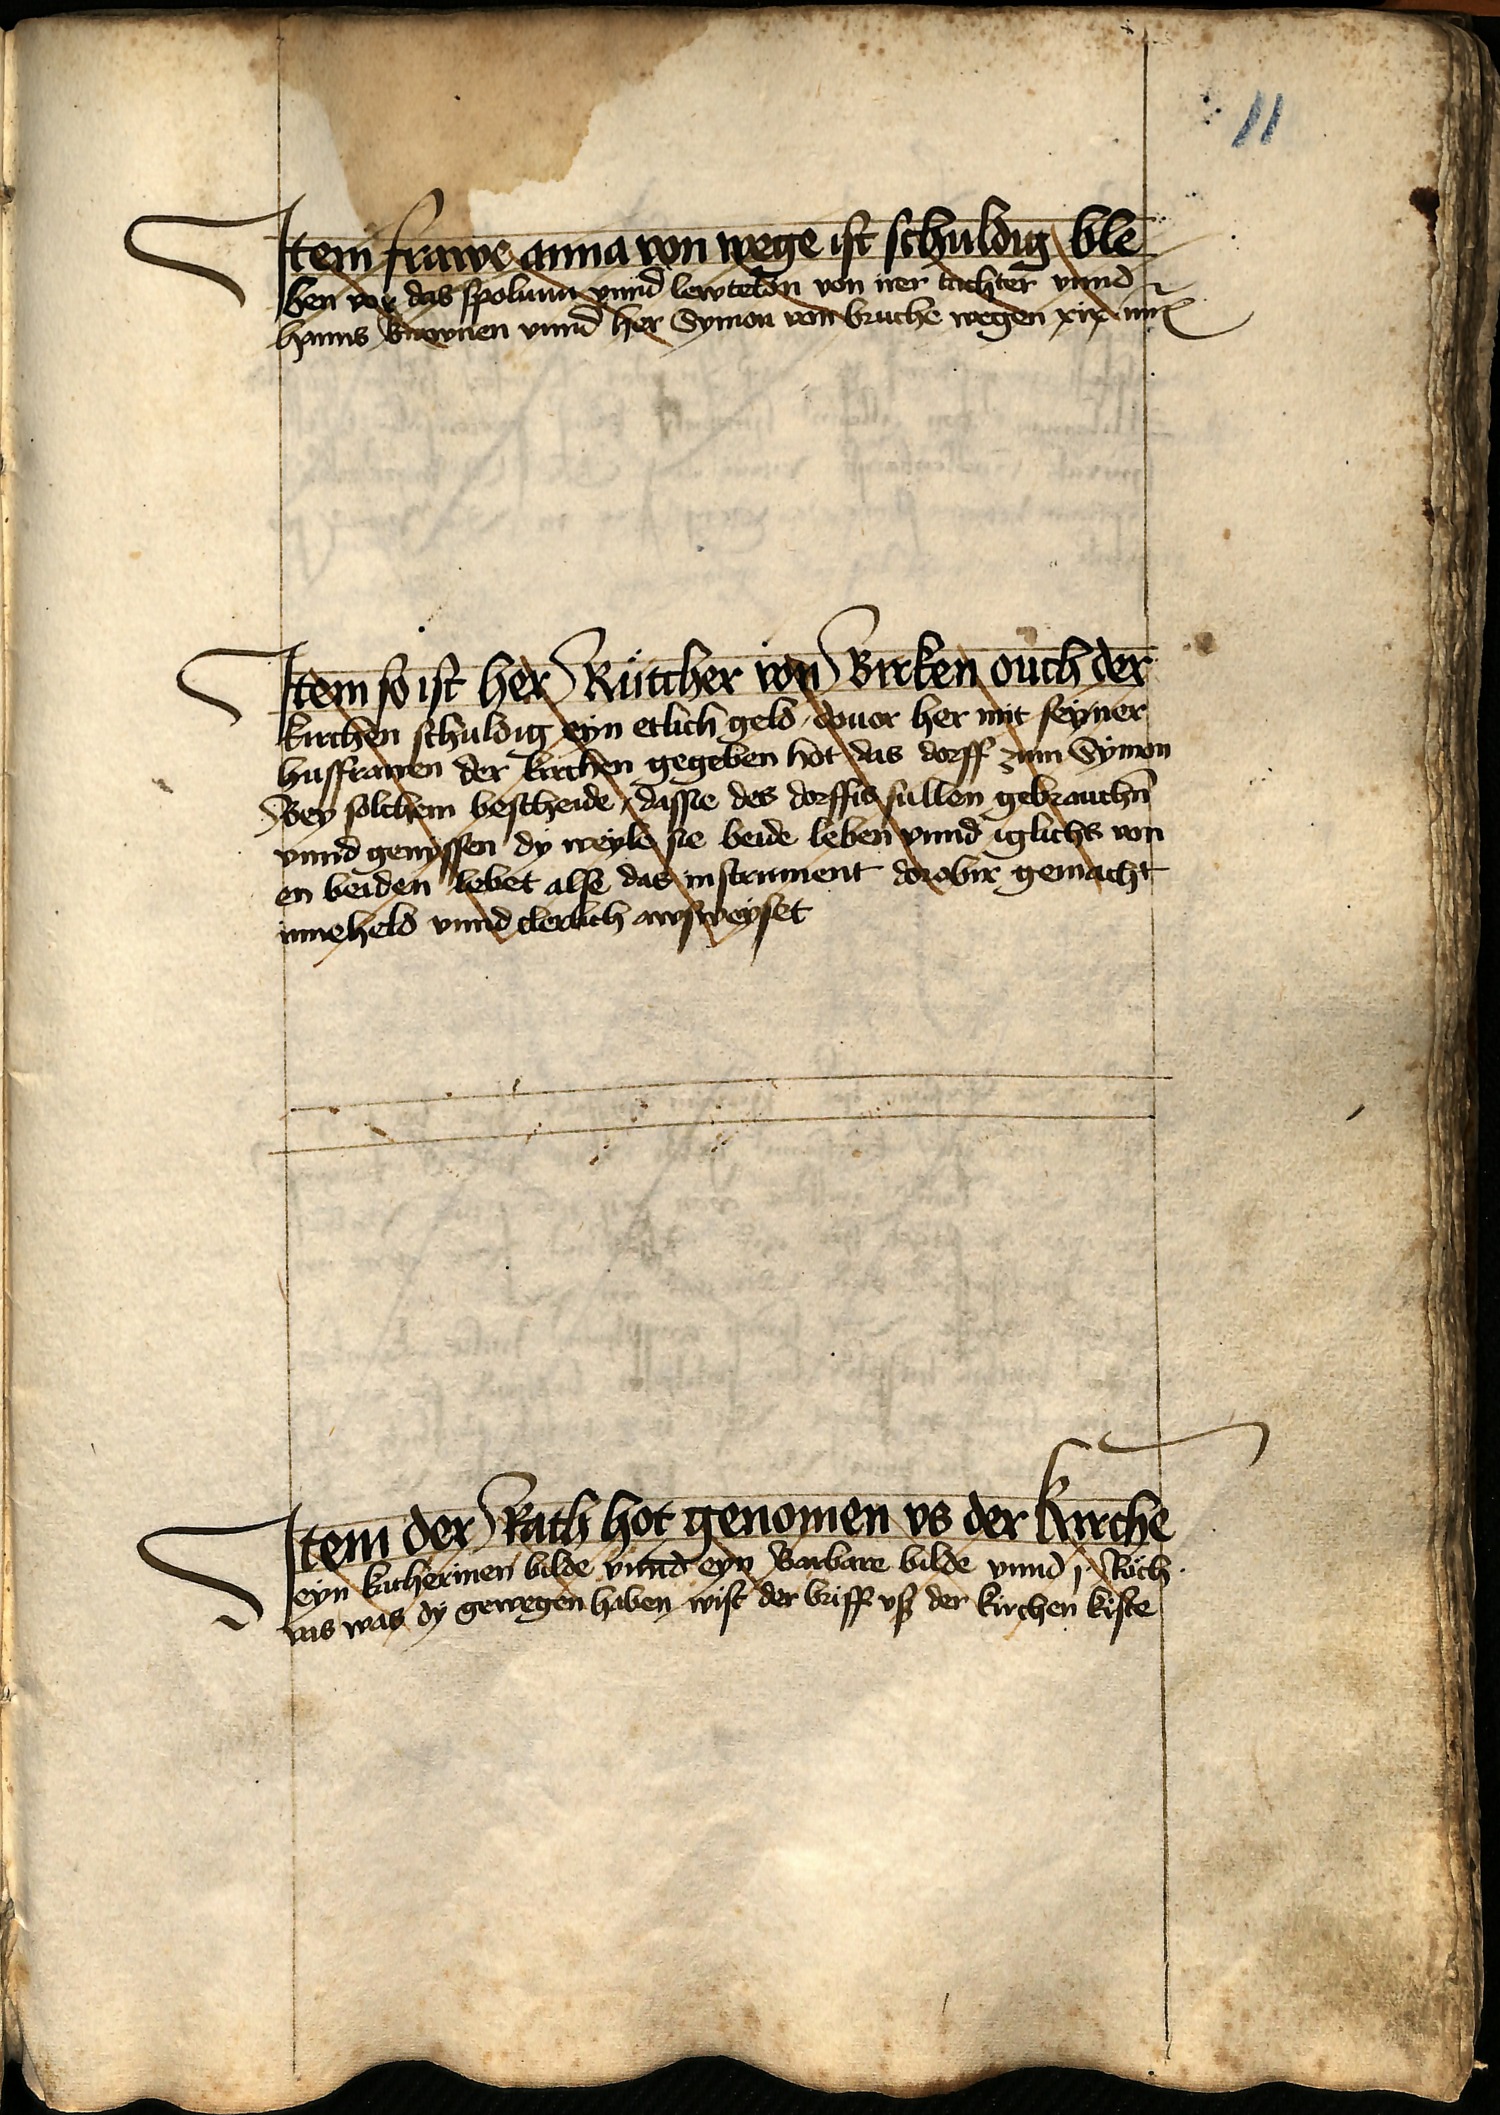 11
Item frawe anna von wege ist schuldig ble
ben vor das spolium vnnd lewteldn von irer tachter vnnd
hanns vnnd her Symon von bruche wegen xix
Item so ist her Rüttcher von Birken ouch der
kirchen schuldig eyn etlich geld / douor her mit seyner
husfrawen der kirchen gegeben hot das dorff zum Symon
Bey solchem bescheide / dassie des dorffis sullen gebrauchn
vnnd genyssen dy weyle sie beide leben vnnd iglichs von
en beiden lebet alse das instrument dorobir gemacht
inneheld vnnd clerlich awsweyset
Item der Rath hot genomen vs der kirche
eyn katherinen bilde vnnd eyn Barbare bilde vnnd j Röch
vas was dy gewegen haben wist der briff vß der kirchen kiste